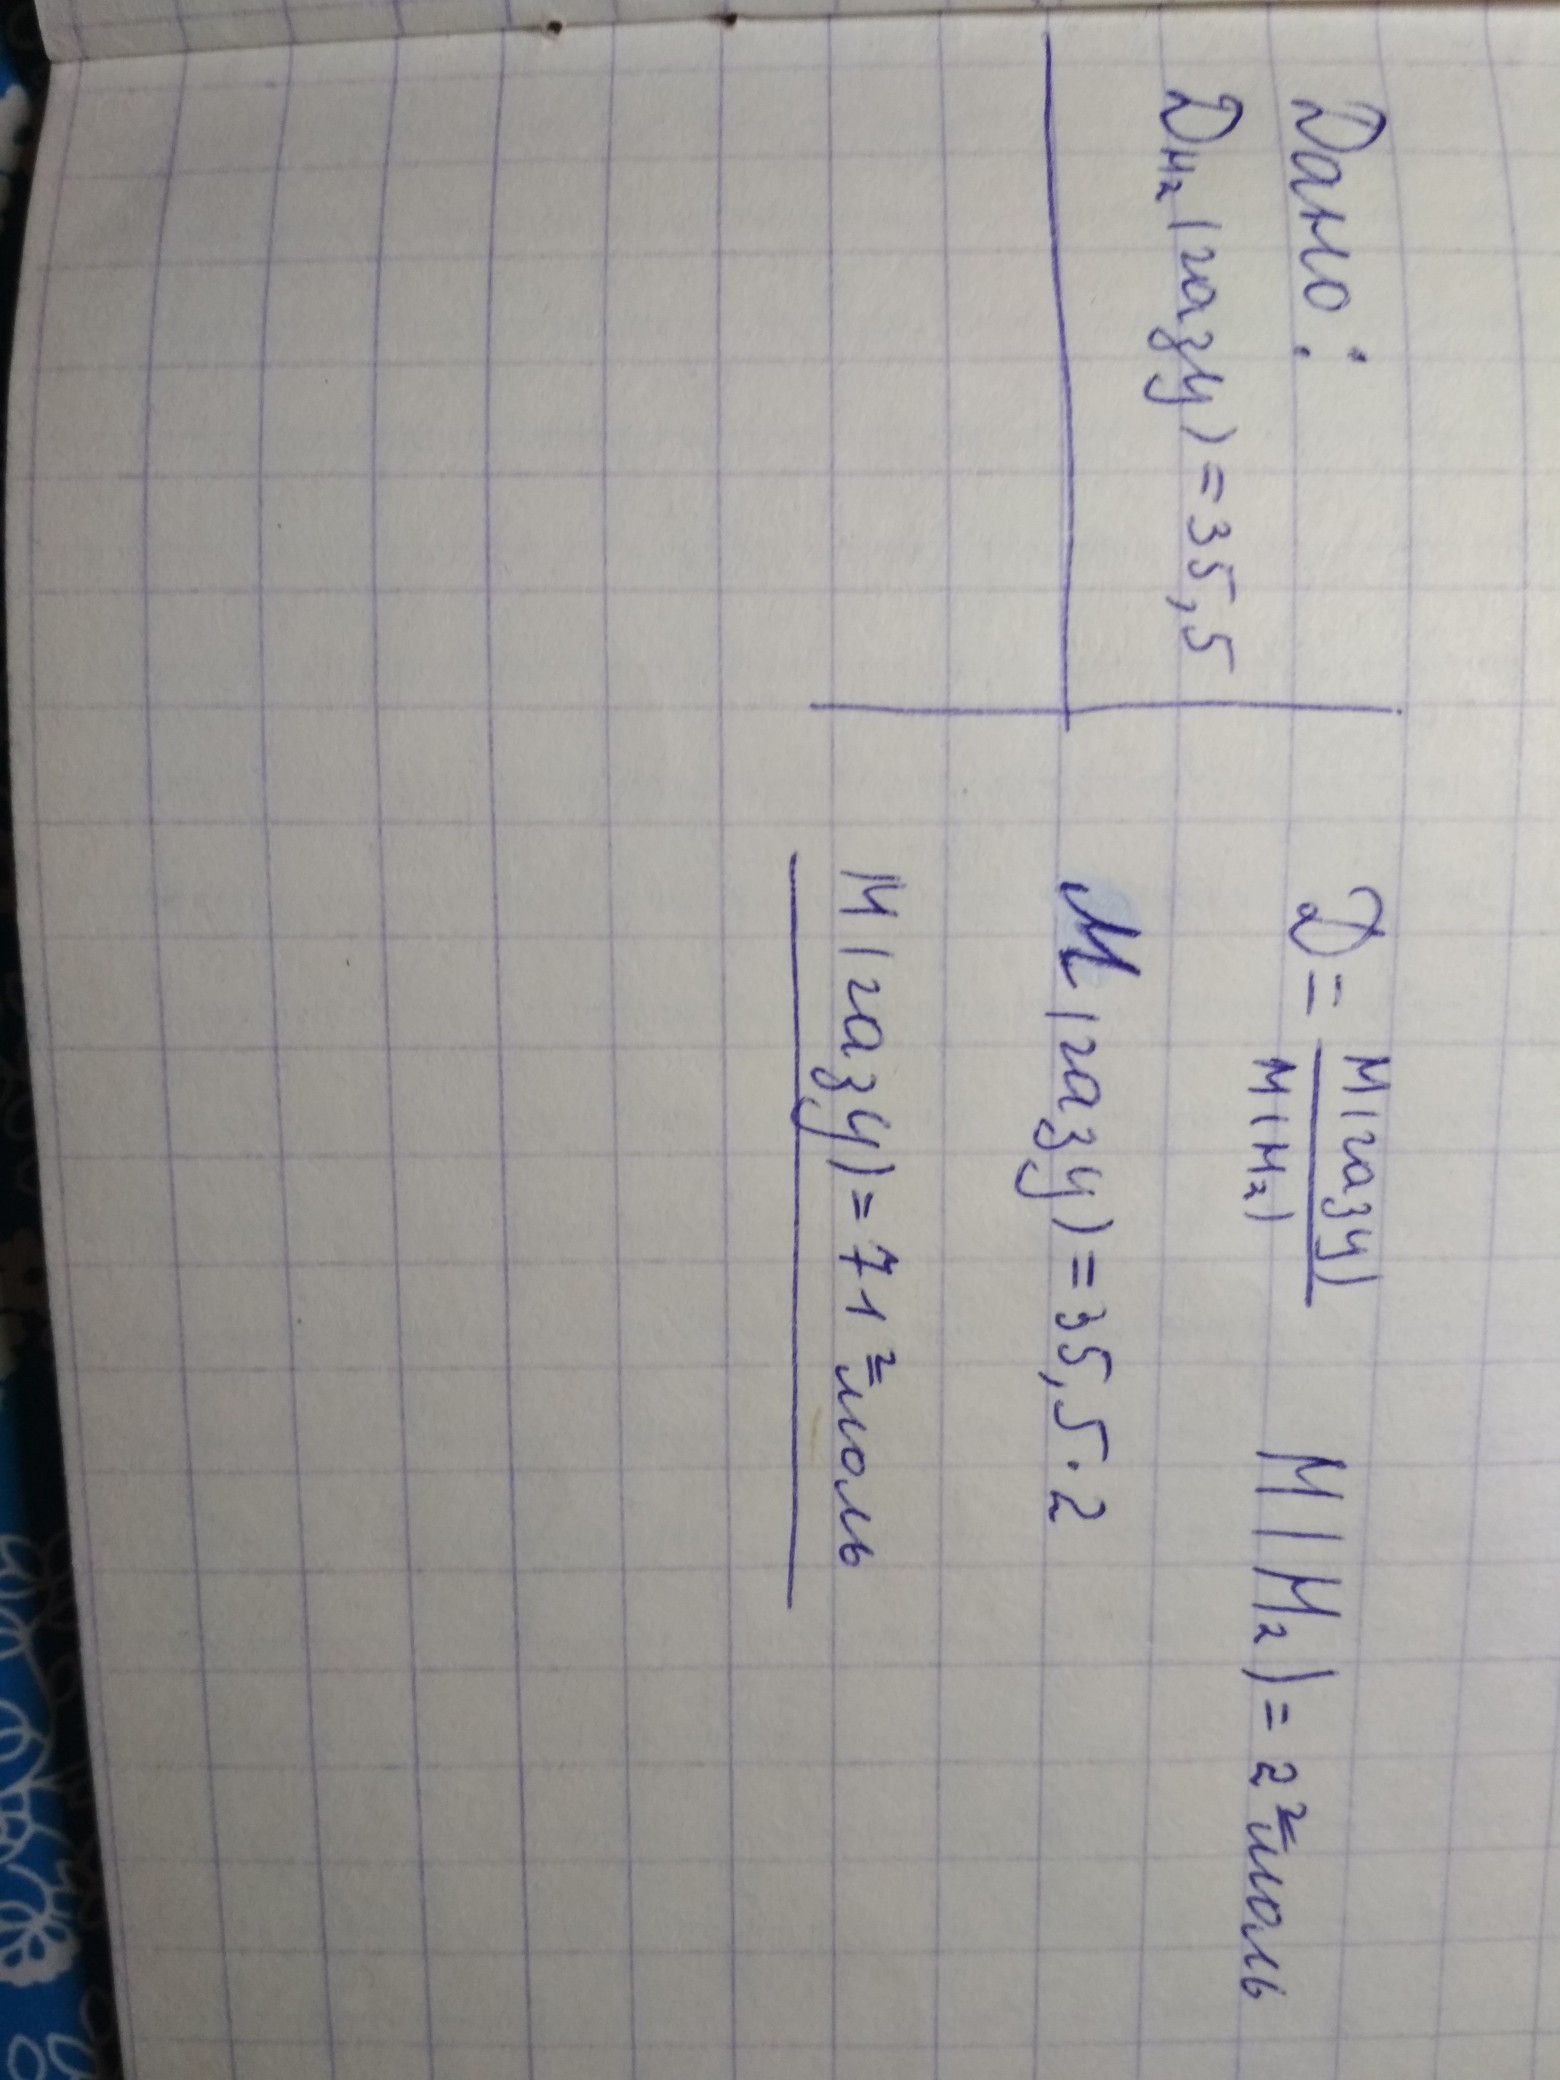 Дано:
D H₂ (газу) = 35,5
D = M(газу) / M(H₂)
M(H₂) = 2 г/моль
M(газу) = 35,5 · 2
M(газу) = 71 г/моль